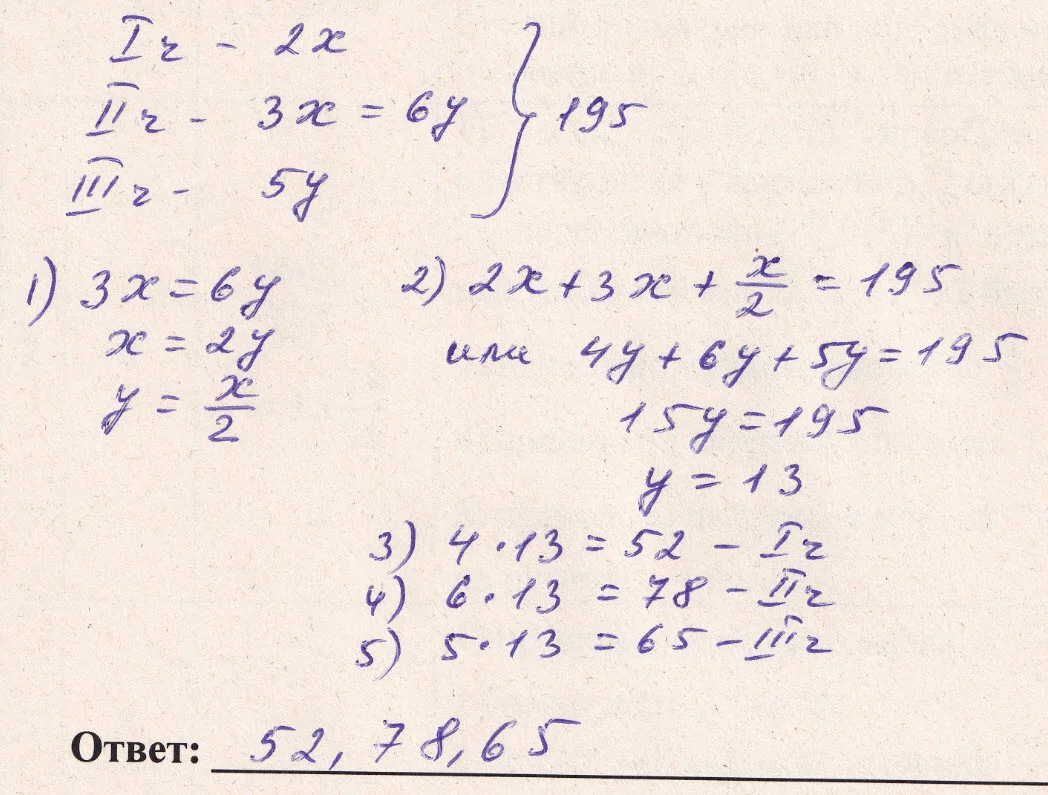 I ч - 2x
II ч - 3x = 6y } 195
III ч - 5y
1) 3x = 6y
x = 2y
y = x/2
2) 2x + 3x + x/2 = 195
или 4y + 6y + 5y = 195
15y = 195
y = 13
3) 4 · 13 = 52 - I ч
4) 6 · 13 = 78 - II ч
5) 5 · 13 = 65 - III ч
Ответ: 52, 78, 65